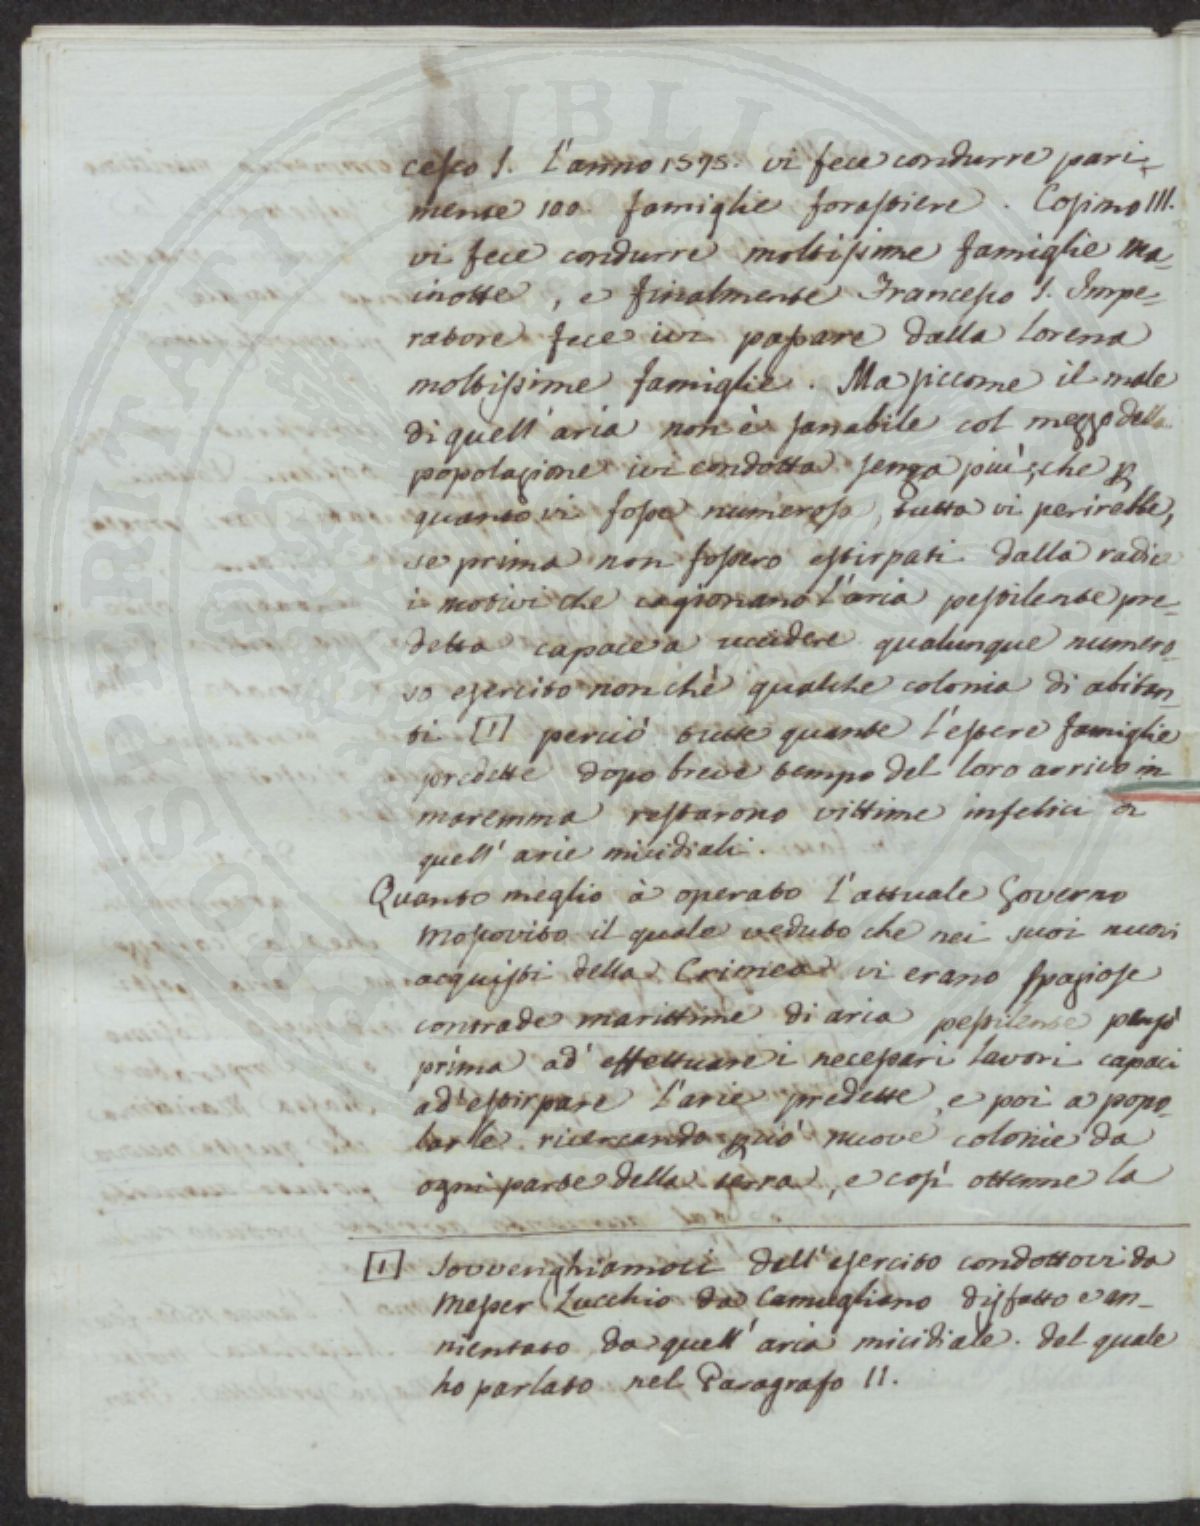 cesco I. l'anno 1595. vi fece condurre pari-
mente 100. famiglie forastiere. Cosimo III.
vi fece condurre moltissime famiglie Ma-
inotte, e finalmente Francesco I. Impe-
ratore fece ivi passare dalla Lorena
moltissime famiglie. Ma siccome il male
di quell'aria non è sanabile col mezzo della
popolazione ivi condotta senza più; che p
quanto vi fosse numerosa, tutta vi perirebbe,
se prima non fossero estirpati dalla radice
i motivi che cagionano l'aria pestilente pre-
detta capace a uccidere qualunque numero-
so esercito non chè qualche colonia di abitan-
ti [1] perciò tutte quante l'estere famiglie
predette dopo breve tempo del loro arrivo in
maremma restarono vittime infelici di
quell'arie micidiali.
Quanto meglio à operato l'attuale Governo
Moscovito il quale veduto che nei suoi nuovi
acquisti della Crimea vi erano spaziose
contrade marittime di aria pestilente pensò
prima ad effettuare i necessari lavori capaci
ad estirpare l'arie predette, e poi a popo-
larle ricercando pciò nuove colonie da
ogni parte della terra, e così ottenne la
[1] Sovvenghiamoci dell'esercito condottovi da
Messer Lucchio da Camugliano disfatto e an-
nientato da quell'aria micidiale. del quale
ho parlato nel Paragrafo II.
PROSPERITATI PUBLICAE